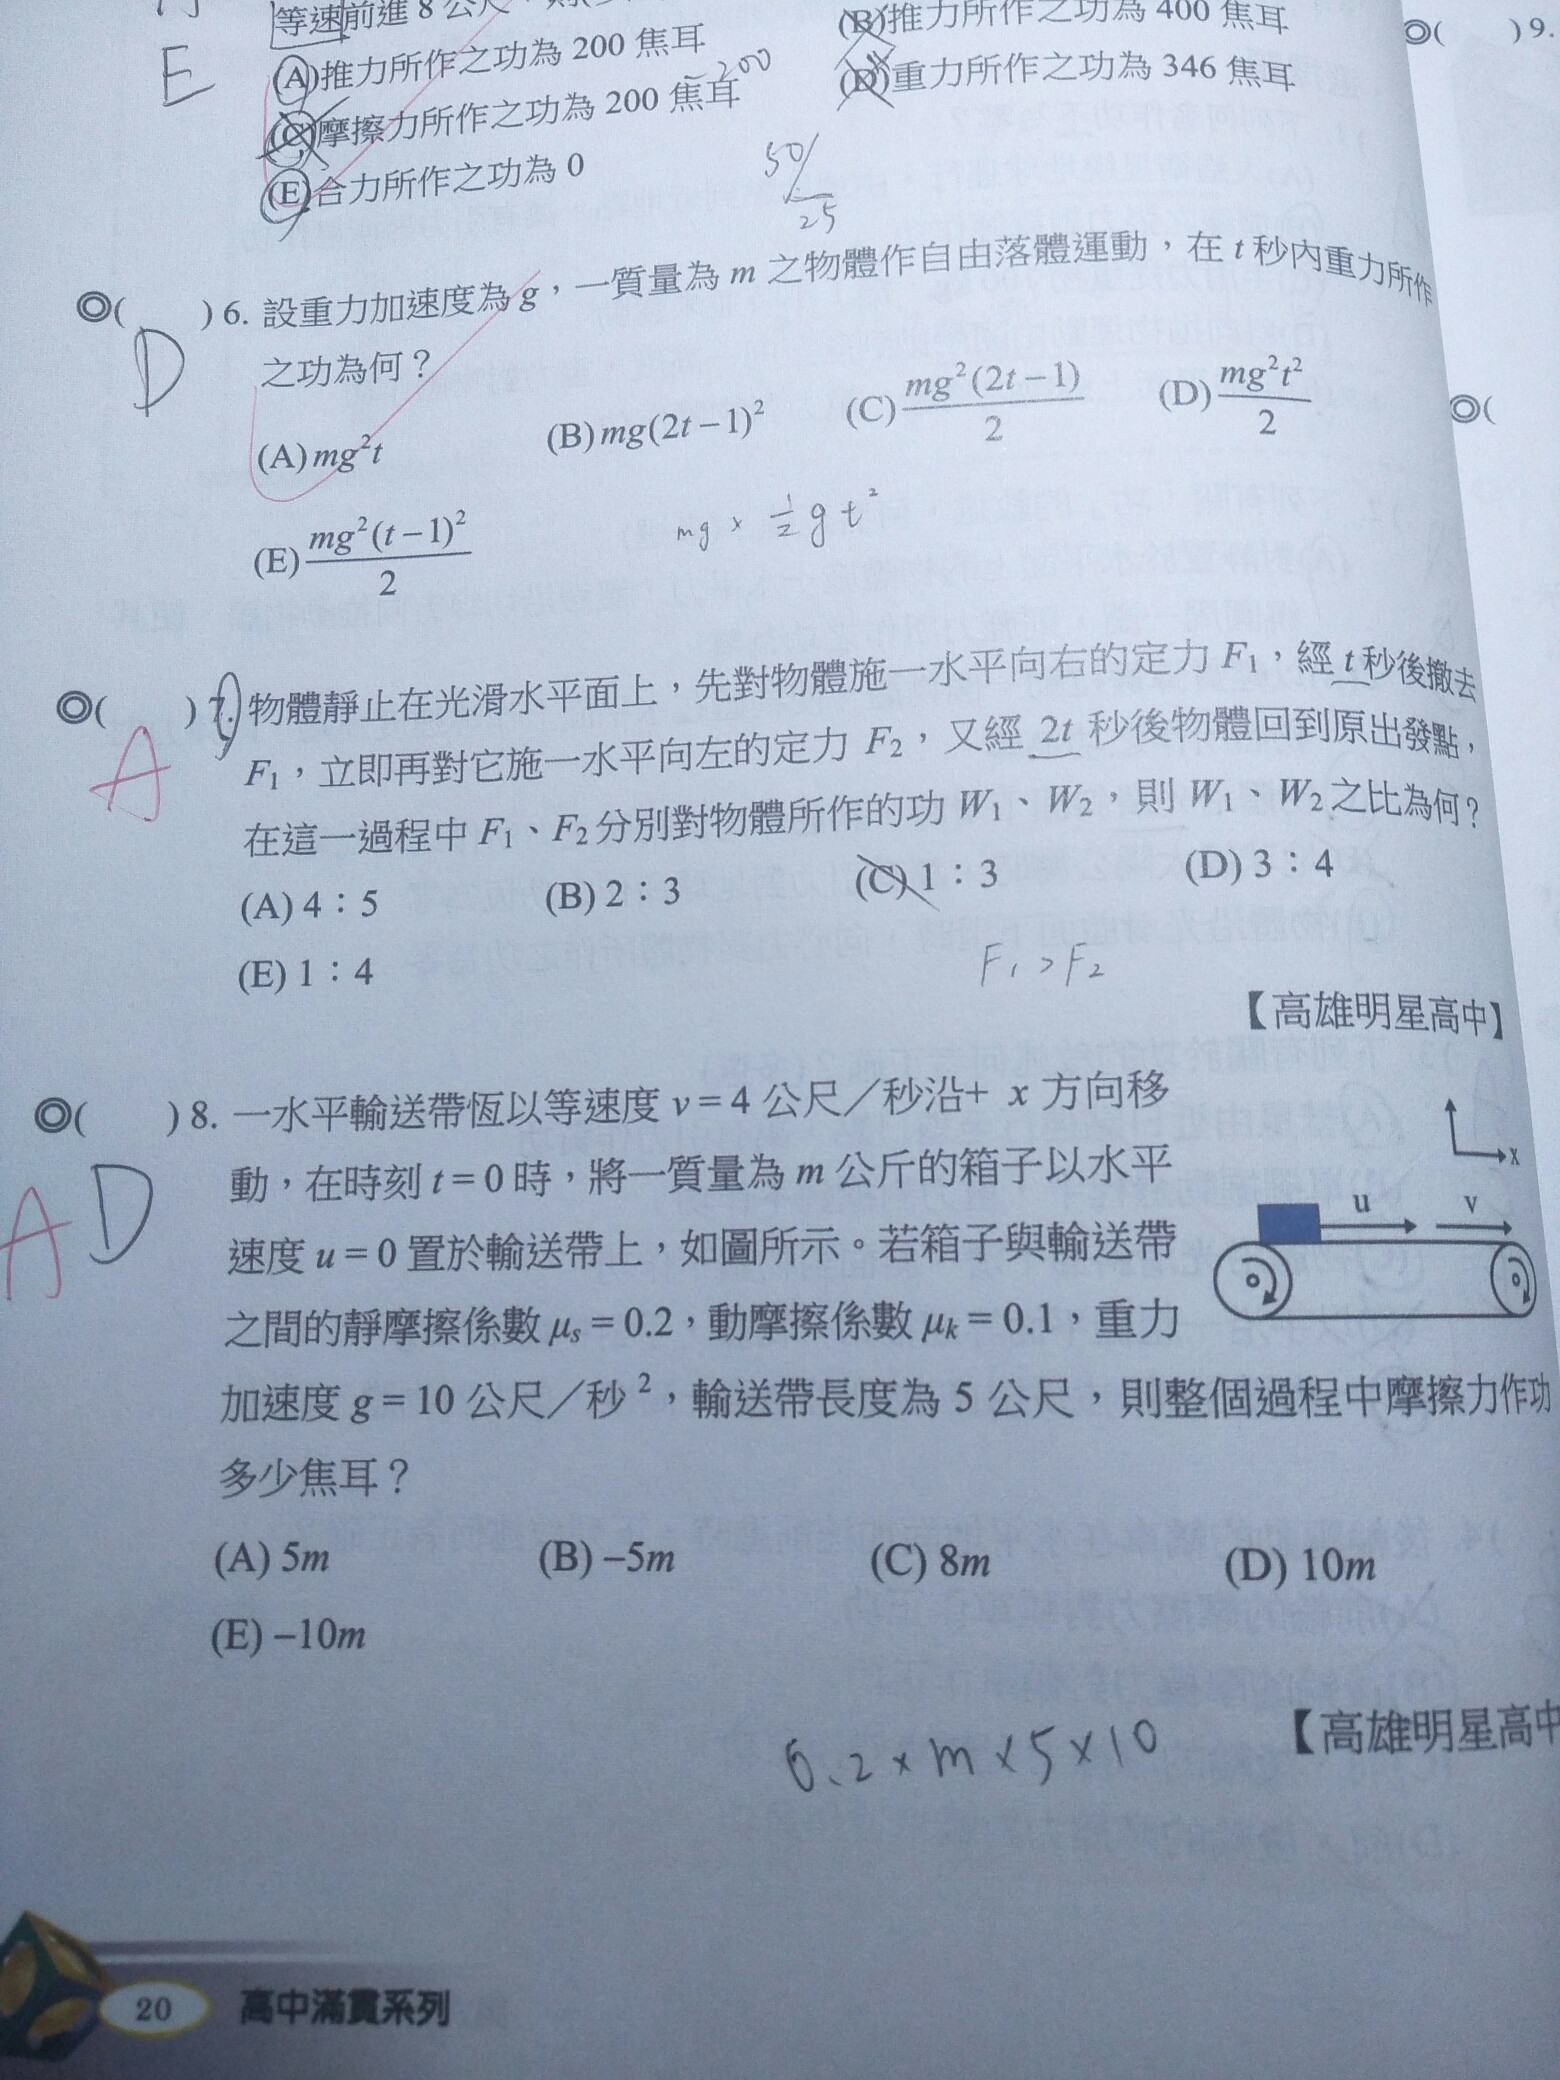 等速前進8公尺,則
(B)推力所作之功為400焦耳
E
(A)推力所作之功為200焦耳
(D)重力所作之功為346焦耳
(C)摩擦力所作之功為200焦耳 -200
(E)合力所作之功為0
50/25
◎( )9.
◎( )6. 設重力加速度為g,一質量為m之物體作自由落體運動,在t秒內重力所作
D
之功為何?
(A)mg²t (B)mg(2t-1)² (C)mg²(2t-1)/2 (D)mg²t²/2
◎(
(E)mg²(t-1)²/2
mg × 1/2 gt²
◎( )7. 物體靜止在光滑水平面上,先對物體施一水平向右的定力F₁,經t秒後撤去
A
F₁,立即再對它施一水平向左的定力F₂,又經2t秒後物體回到原出發點,
在這一過程中F₁、F₂分別對物體所作的功W₁、W₂,則W₁、W₂之比為何?
(A) 4:5 (B) 2:3 (C) 1:3 (D) 3:4
(E) 1:4
F₁>F₂
【高雄明星高中】
◎( )8. 一水平輸送帶恆以等速度v=4公尺/秒沿+x方向移
A D
動,在時刻t=0時,將一質量為m公斤的箱子以水平
速度u=0置於輸送帶上,如圖所示。若箱子與輸送帶
之間的靜摩擦係數μs=0.2,動摩擦係數μk=0.1,重力
加速度g=10公尺/秒²,輸送帶長度為5公尺,則整個過程中摩擦力作功
多少焦耳?
x
u v
(A) 5m (B) –5m (C) 8m (D) 10m
(E) –10m
0.2×m×5×10
【高雄明星高中
20 高中滿貫系列